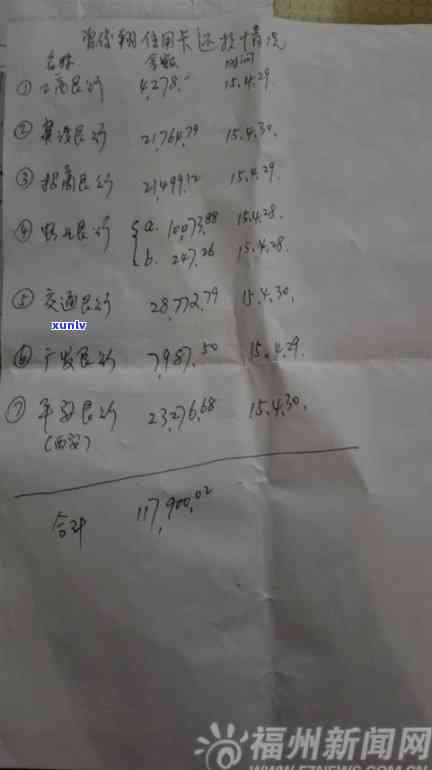 信用卡还款情况
名称 金额 时间
① 工商银行 4,278.- 15.4.29.
② 建设银行 21,764.79 15.4.30.
③ 招商银行 21,499.12 15.4.29.
④ 农业银行 { a. 10,073.88 15.4.28.
b. 247.26 15.4.28.
⑤ 交通银行 28,772.79 15.4.30.
xunlv
⑥ 广发银行 7,987.50 15.4.29.
⑦ 平安银行 23,276.68 15.4.30.
(西安)
合计 117,900.02
福州新闻网
WWW.FZNEWS.COM.CN